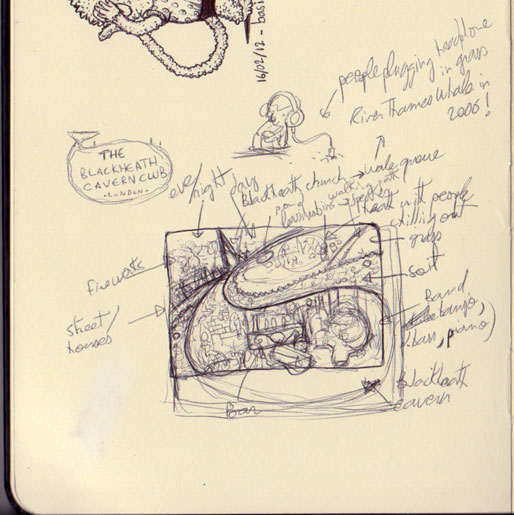 16/02/12 - basi
people plugging headphone
in grass
River Thames Whale in
2006!
THE
BLACKHEATH
CAVERN CLUB
-LONDON-
eve/night
day
Blackheath church
whale queue
walking path
heath with people
chilling out
grass
fireworks
soil
street/
houses
Band
banjo,
bass, piano)
Bar
blackheath
cavern